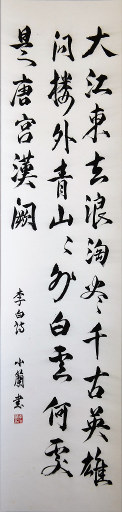 大江東去浪淘尽千古英雄
问楼外青山山外白雲何處
是唐宫漢阙
李白诗
小蘭書